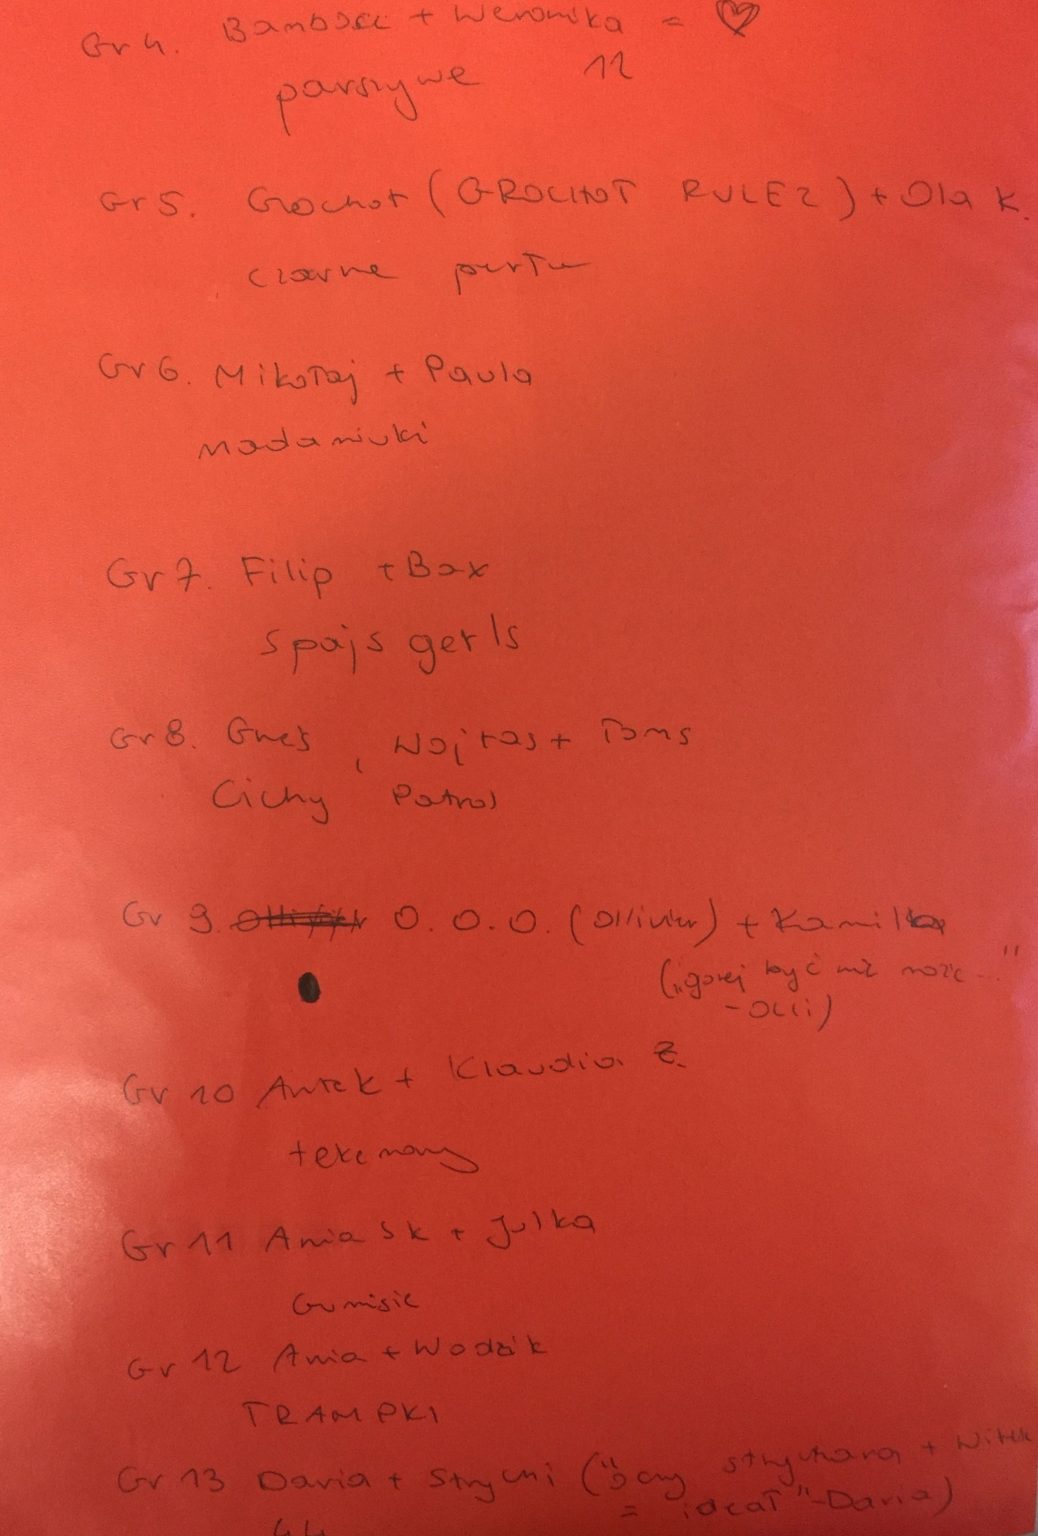 Gr 4. Bambosz + Weronika = ♡
parszywe 12
Gr 5. Grochot (GROCHOT RULEZ) + Ola K.
czarne
Gr 6. Mikołaj + Paula
Gr 7. Filip + Bax
spajs gerls
Gr 8. Wojtas +
Cichy Patrol
Gr 9. O. O. O. (Ollivier) + Kamilka
być nie może ..."
- Olli)
Gr 10 Antek + Klaudia Z.
Gr 11 Ania Sk + Julka
Gumisie
Gr 12 Ania + Wodzik
TRAMPKI
Gr 13 Daria + Strychi ("oczy strychara + Witek
= ideał" - Daria)